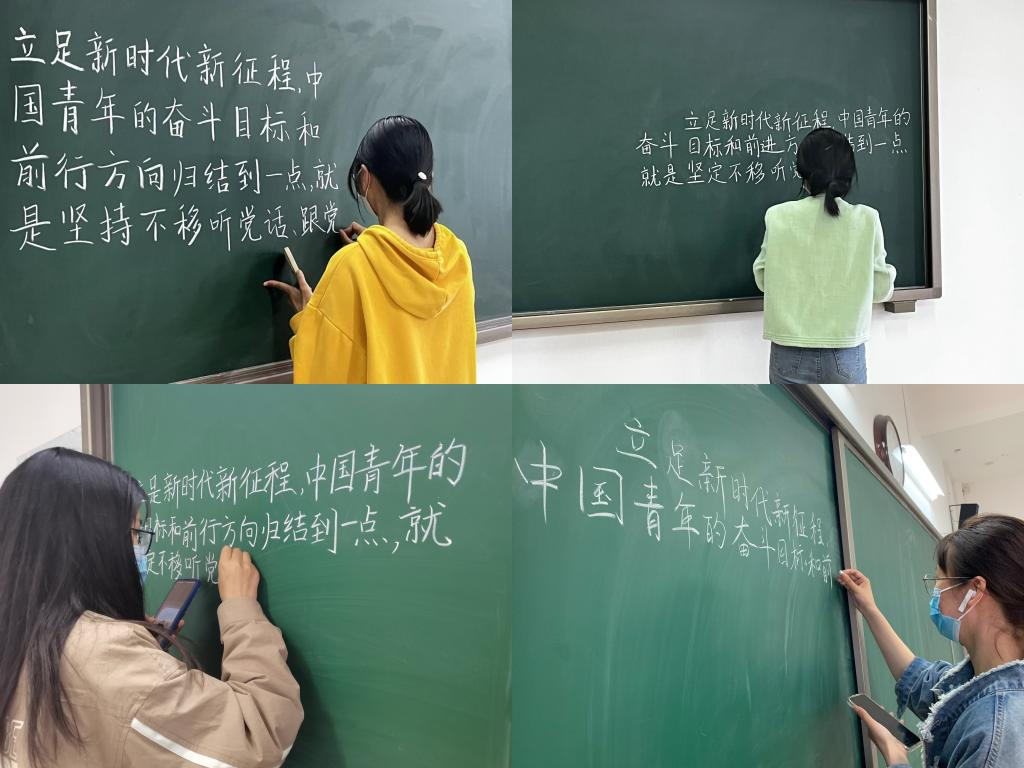 立足新时代新征程,中
国青年的奋斗目标和
前行方向归结到一点,就
是坚持不移听党话、跟党
立足新时代新征程,中国青年的
奋斗目标和前进方 结到一点
就是坚定不移听党
是新时代新征程,中国青年的
目标和前行方向归结到一点,就
定不移听党
立足新时代新征程,
中国青年的奋斗目标和前